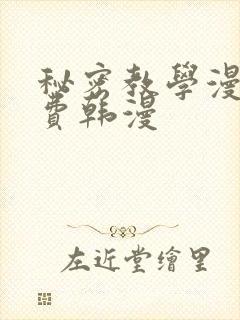 秘密教學漫
費韩漫
左近堂繪里